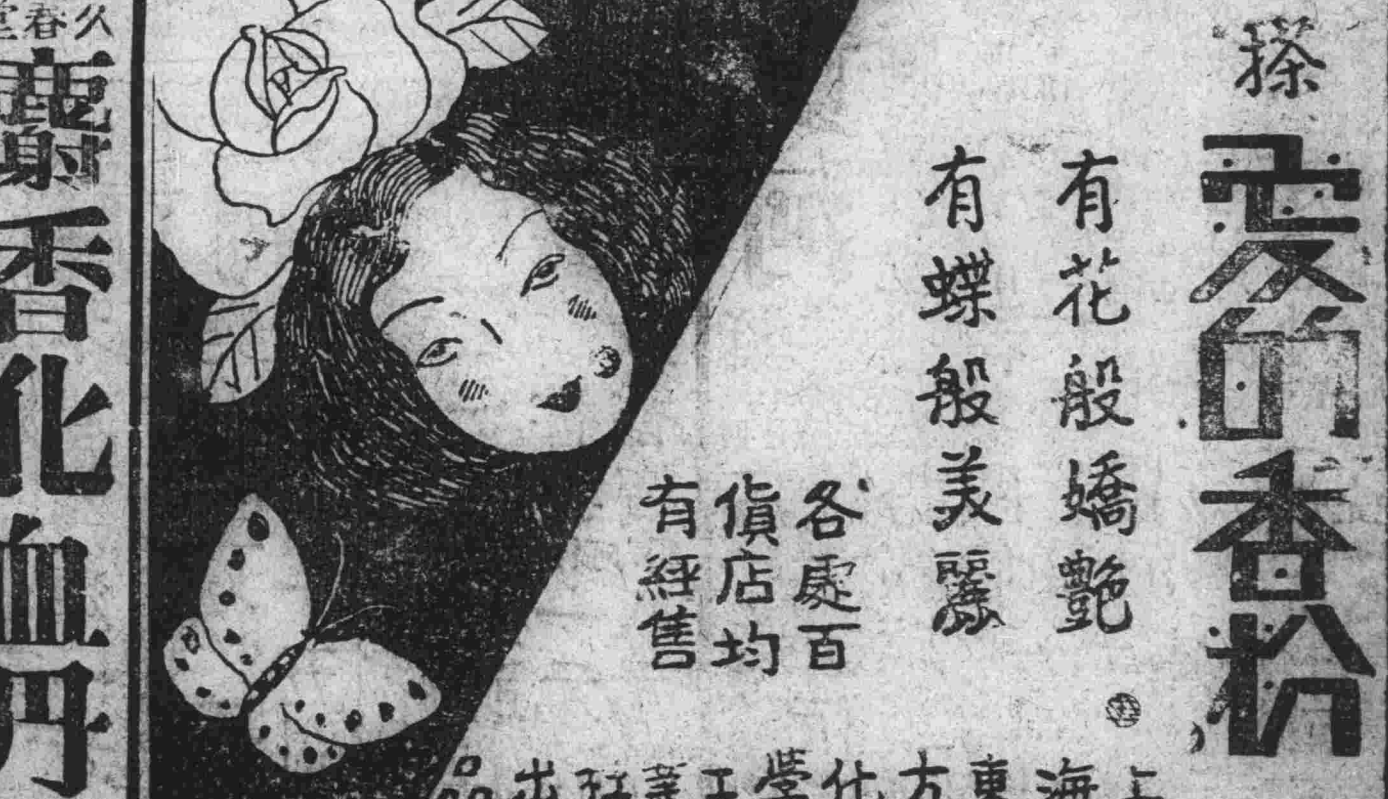 搽
愛的香粉
有花般嬌艷
有蝶般美麗
各處百
貨店均
有經售
上海東方化學工業社出品
久春堂
麝香化血丹